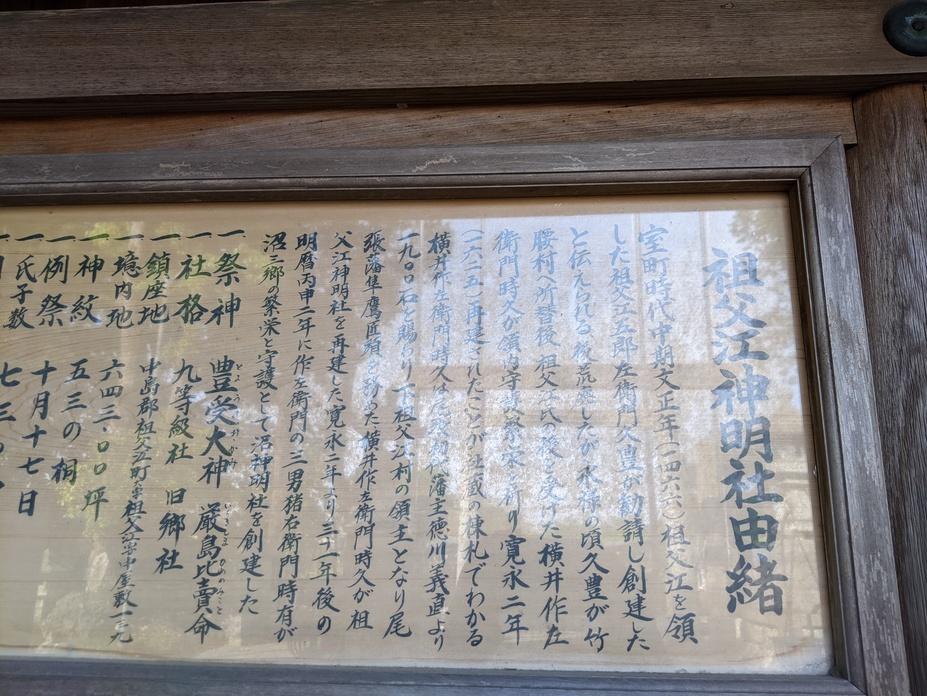 祖父江神明社由緒
室町時代中期文正年(一四六六)祖父江を領
した祖父江五郎左衛門久豊が勧請し創建した
と伝えられる。後荒廃したが永禄の頃久豊が竹
腰村へ所替後、祖父江氏の後を受けた横井作左
衛門時久が領内守護祭栄を祈り寛永二年
(一六二五)再建されたことが社蔵の棟札でわかる
横井作左衛門時久は尾張初代藩主徳川義直より
一九〇〇石を賜わり下祖父江村の領主となり尾
張藩隼鷹匠頭を務めた横井作左衛門時久が祖
父江神明社を再建した寛永二年より三十一年後の
明暦丙申二年に作左衛門の三男猪右衛門時有が
沼三郷の繁栄と守護として沼神明社を創建した
一祭神 豊受大神 厳島比賣命
とよう おおかみ いちきしまひめのみこと
一社格 九等級社 旧郷社
一鎮座地 中島郡祖父江町 祖父江字中屋敷
一境内地 六四三・〇〇坪
一神紋 五三の桐
一例祭 十月十七日
一氏子数 七三